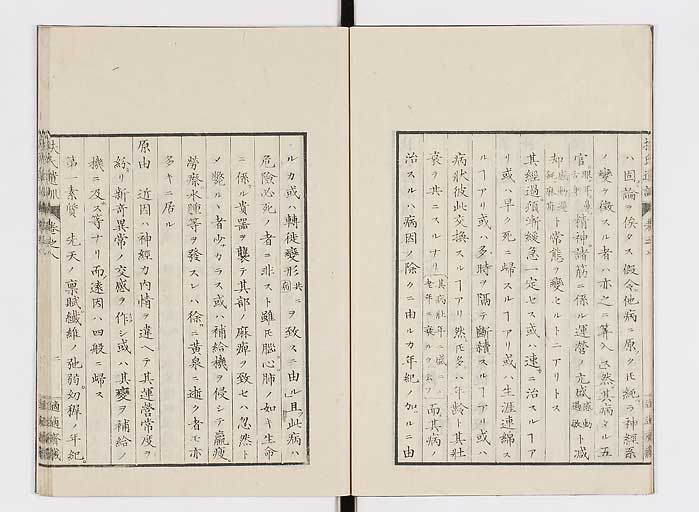 ハ固ヨリ論ヲ俟タス假令他病ニ原クモ純ラ神經系
ノ變ヲ徴スル者ハ亦之ニ算入ス然其病タル五
官眼耳鼻舌身精神諸筋ニ係ル運営ノ亢盛
却
ト常態ヲ變セルトニアリトス
其經過頻漸緩急一定セス或ハ速ニ治スルヿア
リ或ハ早ク死ニ歸スルヿアリ或ハ生涯連綿ス
ルヿアリ或ハ多時ヲ隔テ斷續スルヿアリ或ハ
病狀彼此交換スルヿアリ然モ多ハ年齡ト其壯
衰ヲ共ニスルナリ其病壯年ニ盛ニ老年ニ衰ルヲ云フ而其病ノ
治スルハ病因ノ除クニ由ルカ年紀ノ加ルニ由
ルカ或ハ轉徙變形ヲ致スニ由ル且此病ハ
危險必死ノ者ニ非スト雖モ腦心肺ノ如キ生命
ニ係ル貴器ヲ襲テ其部ノ麻痺ヲ致セハ忽然ト
メ斃ルヽ者少カラス或ハ補給機ヲ侵シテ羸瘦
勞瘵水腫等ヲ發スレハ徐ニ黃泉ニ逝ク者モ亦
多キニ居ル
原由 近因ハ神經力內情ヲ違ヘテ其運営常度ヲ
紛リ新奇異常ノ交感ヲ作シ或ハ其變ヲ補給ノ
機ニ及ス等ナリ而遠因ハ四般ニ歸ス
第一素質 先天ノ稟賦纖維ノ弛弱幼穉ノ年紀